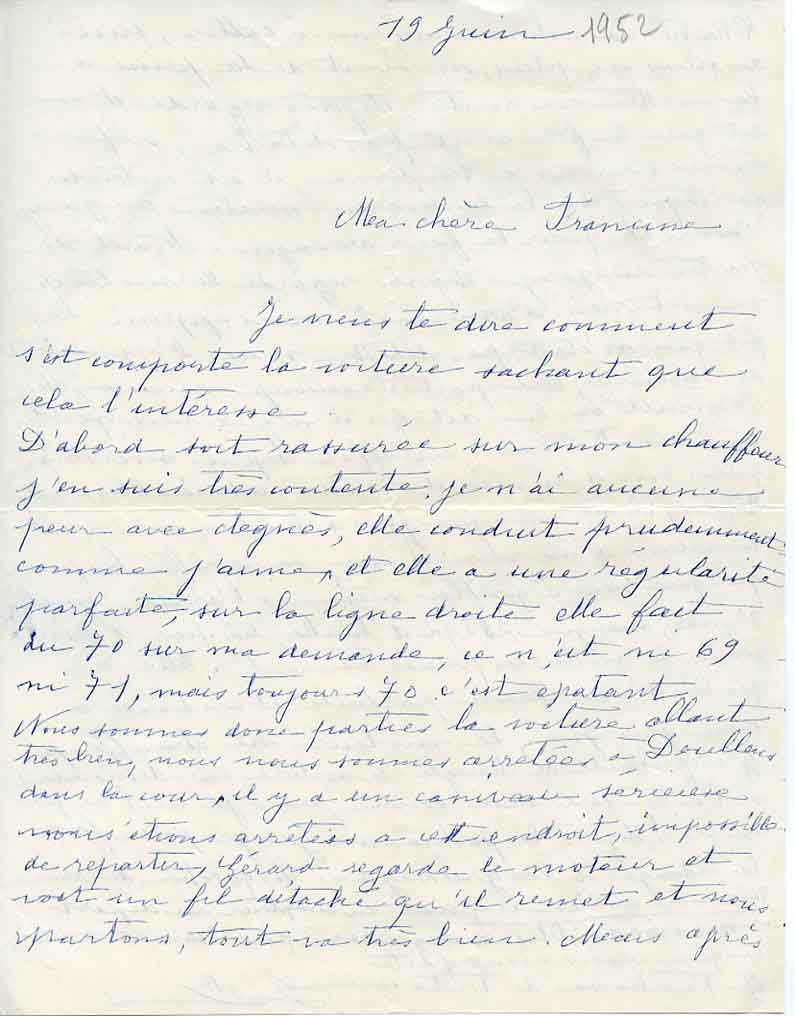 19 Juin 1952
Ma chère Francine
Je viens te dire comment
s'est comporté la voiture sachant que
cela t'intéresse.
D'abord soit rassurée sur mon chauffeur
j'en suis très contente, je n'ai aucune
peur avec elle conduit prudemment
comme j'aime, et elle a une régularité
parfaite, sur la ligne droite elle fait
du 70 sur ma demande, ce n'est ni 69
ni 71, mais toujours 70 c'est epatant
Nous sommes donc parties la voiture allant
très bien, nous nous sommes arrêtées à Doullens
dans la cour, il y a un caniveau sérieux
nous étions arrêtées a cet endroit, impossible
de repartir, Gérard regarde le moteur et
voit un fil détaché qu'il remet et nous
repartons, tout va très bien. Mais après